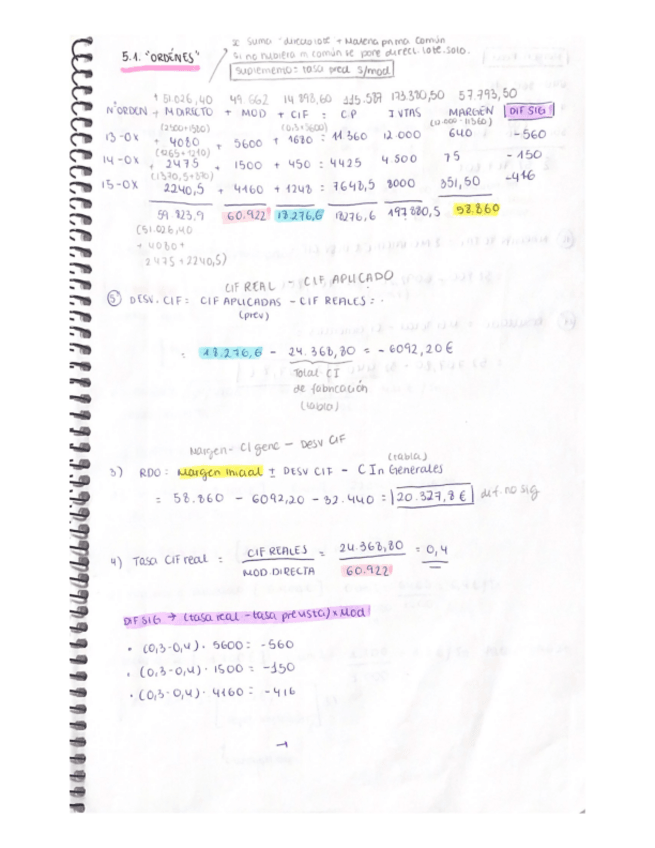 5.1. "ORDENES"
* Suma "directo lote + Materia prima común
si no hubiera m. común se pone direct. lote. solo.
suplemento: tasa pred s/mod
51.026,40 49.662 14.898,60 115.587 173.380,50 57.793,50
NºORDEN + MDIRECTO + MOD + CIF = CP IVTAS MARGEN DIF SIG
(2500+1580) (0,3·5600) (12.000-11360)
13-OX + 4080 + 5600 + 1680 = 11.360 12.000 640 -560
(1265+1210)
14-OX + 2475 + 1500 + 450 = 4425 4.500 75 -150
(1370,5+870)
15-OX 2240,5 + 4160 + 1248 = 7648,5 8000 351,50 -416
59.823,9 60.922 18.276,6 18276,6 197.880,5 58.860
(51.026,40
+ 4080+
2475+2240,5)
CIF REAL - CIF APLICADO
5) DESV. CIF: CIF APLICADAS - CIF REALES = -
(prev)
= 18.276,6 - 24.368,80 = - 6092,20€
Total CI
de fabricación
(tabla)
Margen - CI genc - DESV CIF
(tabla)
3) RDO: Margen Inicial ± DESV CIF - C In Generales
= 58.860 - 6092,20 - 32.440 = 20.327,8 € dif. no sig
4) Tasa CIF real = CIF REALES = 24.368,80 = 0,4
MOD.DIRECTA 60.922
DIF SIG → (tasa real - tasa prevista) x Mod
• (0,3-0,4) · 5600 = -560
• (0,3-0,4) · 1500 = -150
• (0,3-0,4) · 4160 = -416